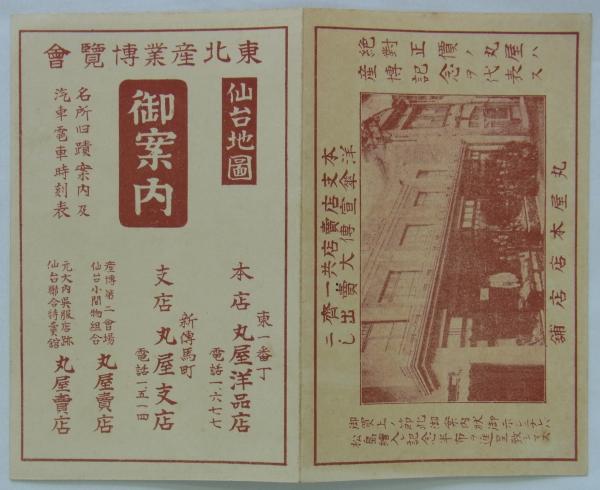 絶對正價ノ丸屋ハ
産博記念ヲ代表ス
丸屋本店店舖
本支店賣店共一齊ニ
洋傘宣傳大賣出し
御買上ノ節此御案内狀御示シ下サレバ
松島繪入記念半布ヲ進呈致シマス
東北産業博覽會
仙台地圖
御案内
名所旧蹟案内及
汽車電車時刻表
東一番丁
本店 丸屋洋品店
電話一六七七
新傳馬町
支店 丸屋支店
電話一五一四
産博第二會場
仙台小間物組合
丸屋賣店
元大内呉服店跡
仙台聯合特賣舘
丸屋賣店